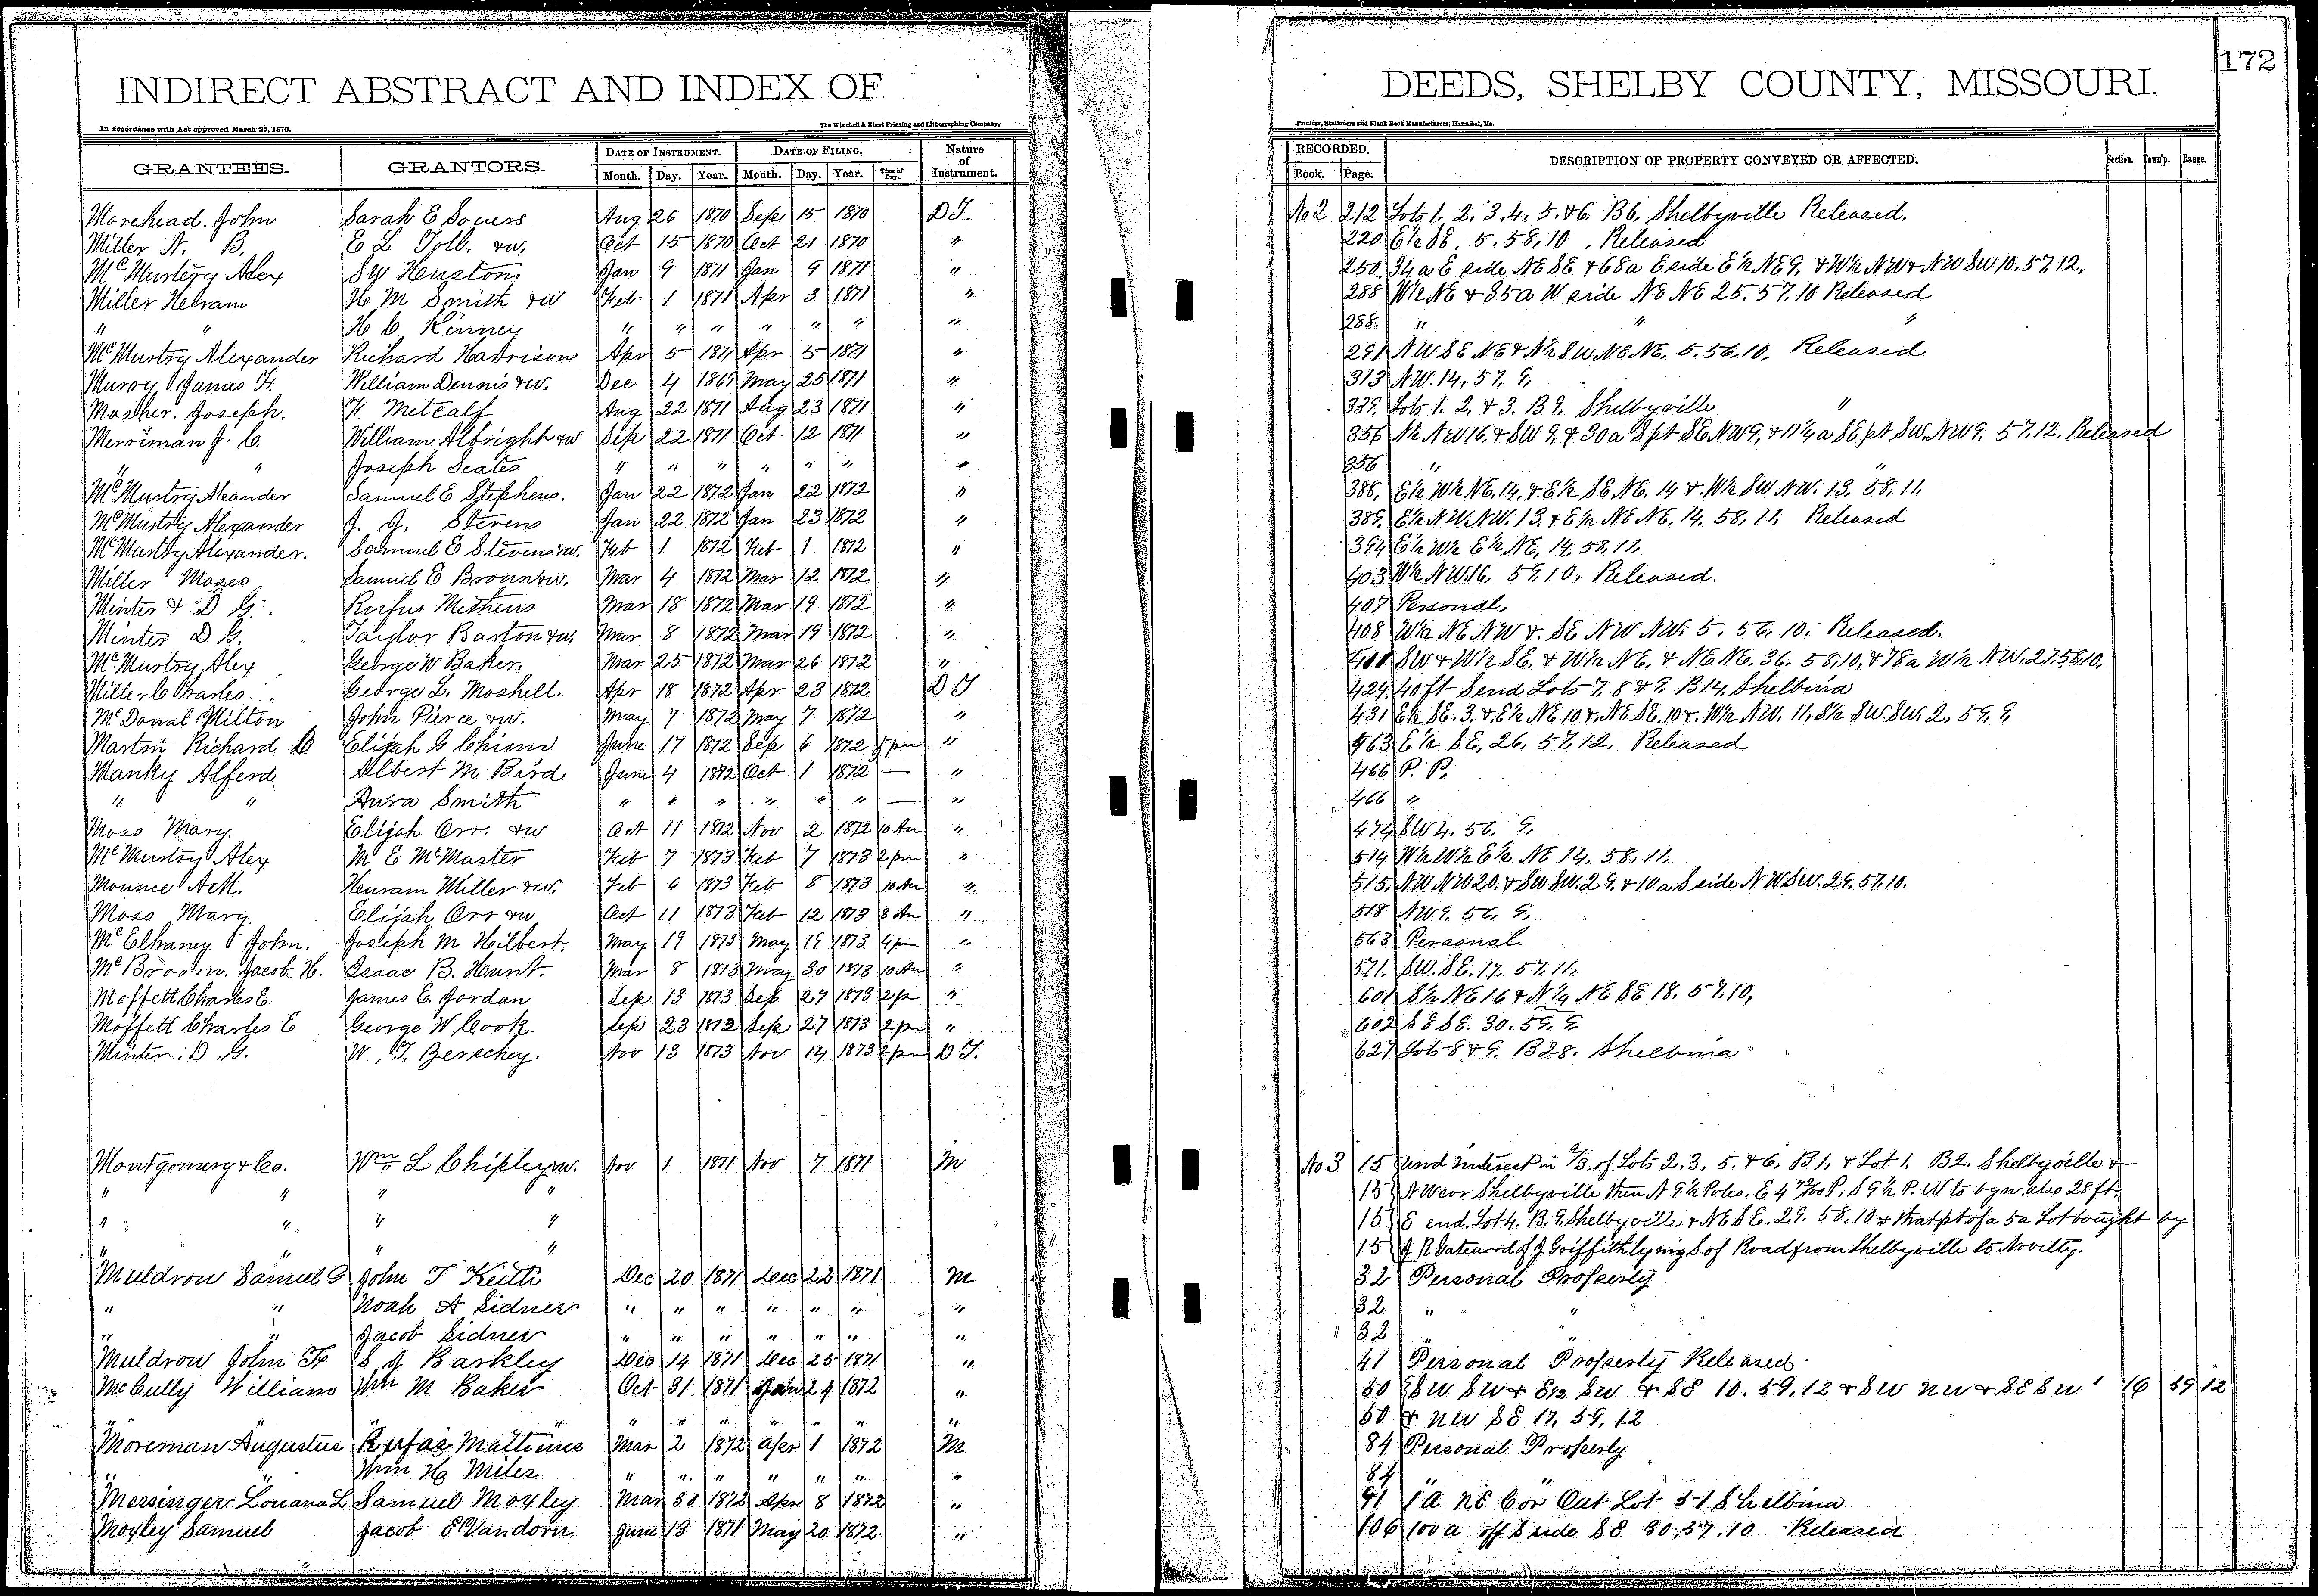 172
INDIRECT ABSTRACT AND INDEX OF DEEDS, SHELBY COUNTY, MISSOURI.
In accordance with Act approved March 25, 1870. The Winchell & Ebert Printing and Lithographing Company, Printers, Stationers and Blank Book Manufacturers, Hannibal, Mo.
GRANTEES. GRANTORS. DATE OF INSTRUMENT. DATE OF FILING. Nature of Instrument. RECORDED. DESCRIPTION OF PROPERTY CONVEYED OR AFFECTED. Section. Town'p. Range.
Month. Day. Year. Month. Day. Year. Time of Day. Book. Page.
Morehead. John Sarah E Souers Aug 26 1870 Sep 15 1870 D T. No 2 212 Lots 1. 2. 3. 4. 5. & 6. B 6. Shelbyville Released.
Miller N. B. E L Toll. & w. Oct 15 1870 Oct 21 1870 " 220 E½ SE. 5. 58, 10. Released
McMurtry Alex S W Houston Jan 9 1871 Jan 9 1871 " 250 34 a E side NE SE & 68 a E side E½ NE 9. & W½ NW & NW SW 10. 57. 12.
Miller Heiram H M Smith & w Feb 1 1871 Apr 3 1871 " 288 W½ NE & 35 a W side NE NE 25. 57. 10 Released
" " H C Kinney " " " " " " " 288. " " "
McMurtry Alexander Richard Harrison Apr 5 1871 Apr 5 1871 " 291 NW SE NE & N½ SW NE NE. 5. 56. 10. Released
Murry James F. William Dennis & w. Dec 4 1869 May 25 1871 " 313 NW. 14, 57. 9,
Mosher. Joseph. F. Metcalf Aug 22 1871 Aug 23 1871 " 339. Lots 1. 2. & 3. B 9. Shelbyville "
Merriman J. C. William Albright & w Sep 22 1871 Oct 12 1871 " 356 N½ NW 16. & SW 9. & 30 a S pt SE NW 9, & 11¼ a SE pt SW. NW 9. 57. 12. Released
" " Joseph Scates " " " " " " " 356 " "
McMurtry Aleander Samuel E Stephens. Jan 22 1872 Jan 22 1872 " 388. E½ W½ NE. 14. & E½ SE. NE. 14 & W½ SW NW. 13. 58, 11.
McMurtry Alexander J. J. Stevens Jan 22 1872 Jan 23 1872 " 389. E½ NW. NW. 13. & E½ NE NE. 14. 58, 11. Released
McMurtry Alexander. Samuel E Stevens & w. Feb 1 1872 Feb 1 1872 " 394 E½ W½ E½ NE, 14. 58, 11.
Miller Moses Samuel E Brown & w. Mar 4 1872 Mar 12 1872 " 403 W½ NW. 16. 59. 10. Released.
Minter & D G. Rufus Methens Mar 18 1872 Mar 19 1872 " 407 Personal.
Minter D G. Taylor Barton & w. Mar 8 1872 Mar 19 1872 " 408 W½ NE NW & SE NW NW. 5. 56. 10. Released.
McMurtry Alex George W Baker. Mar 25 1872 Mar 26 1872 " SW & W½ SE. & W½ NE. & NE NE. 36. 58, 10. & 78 a W½ NW. 27. 58. 10.
Miller C Charles. George L. Moshell. Apr 18 1872 Apr 23 1872 D T 429. 40 ft S end Lots 7. 8 & 9. B 14, Shelbina
McDonal Milton John Pierce & w. May 7 1872 May 7 1872 " 431 E½ SE. 3. & E½ NE 10 & NE SE. 10 & W½ NW. 11. S½ SW. SW. 2. 59. 9,
Martin Richard Elijah G Chinn June 17 1872 Sep 6 1872 5 pm " 463 E½ SE. 26. 57. 12. Released
Manky Alferd Albert M Bird June 4 1872 Oct 1 1872 — " 466 P. P.
" " Anra Smith " " " " " " — " 466 "
Moss Mary. Elijah Orr. & w Oct 11 1872 Nov 2 1872 10 Am " 474 SW 4. 56. 9.
McMurtry Alex M E McMaster Feb 7 1873 Feb 7 1873 2 pm " 514 W½ W½ E½ NE 14. 58, 11.
Mounce A M. Heuram Miller & w. Feb 6 1873 Feb 8 1873 10 Am " 515. NW NW 20. & SW SW. 29. & 10 a S side NW SW. 29. 57. 10.
Moss Mary. Elijah Orr & w Oct 11 1873 Feb 12 1873 8 Am " 518 NW 9. 56. 9.
McElhaney. John. Joseph M Hilbert. May 19 1873 May 19 1873 4 pm " 563 Personal.
McBroom. Jacob. H. Isaac B. Hunt. Mar 8 1873 May 30 1873 10 Am " 571. SW. SE. 17. 57. 11.
Moffett Charles E James E. Jordan Sep 13 1873 Sep 27 1873 2 p " 601 S½ NE 16 & N¼ NE SE 18. 57. 10,
Moffett Charles E George W Cook. Sep 23 1872 Sep 27 1873 2 pm " 602 SE SE. 30. 59. 9
Minter. D. G. W. T. Zerschey. Nov 13 1873 Nov 14 1873 2 pm D T. 627 Lots 8 & 9. B 28. Shelbina
Montgomery & Co. Wm L Chipley & w. Nov 1 1871 Nov 7 1871 M No 3 15 und interest in 2/3. of Lots 2. 3. 5. & 6. B 1. & Lot 1. B 2. Shelbyville &
" " " " 15 NW cor Shelbyville then N 9½ Poles. E 4 72/100 P. S 9½ P. W to bgn. also 28 ft.
" " " " 15 E end. Lot 4. B. 9. Shelbyville & NE SE. 29. 58. 10 & that pt of a 5 a Lot bought by
" " " " 15 J R Gatewood of J Griffith lying S of Road from Shelbyville to Novelty.
Muldrow Samuel G John T Keith Dec 20 1871 Dec 22 1871 M 32 Personal Property
" " Noah A Sidner " " " " " " " 32 " "
" " Jacob Sidner " " " " " " " 32 " "
Muldrow John F S J Barkley Dec 14 1871 Dec 25 1871 " 41 Personal Property Released.
McCully William Wm M Baker Oct 31 1871 Jan 24 1872 " 50 SW SW & E½ SW & SE 10. 59, 12 & SW NW & SE SW 16 59 12
" " " " " " " " " 50 & NW SE 17, 59, 12
Moreman Augustus Rufas Matthews Mar 2 1872 Apr 1 1872 M 84 Personal Property
Wm H Miles " " " " " " " 84
" Messinger Louana L Samuel Moxley Mar 30 1872 Apr 8 1872 " 91 1 a NE Cor Out Lot 51 Shelbina
Moxley Samuel Jacob E Vandorn June 13 1871 May 20 1872 " 106 100 a off S side SE 30. 57. 10 Released